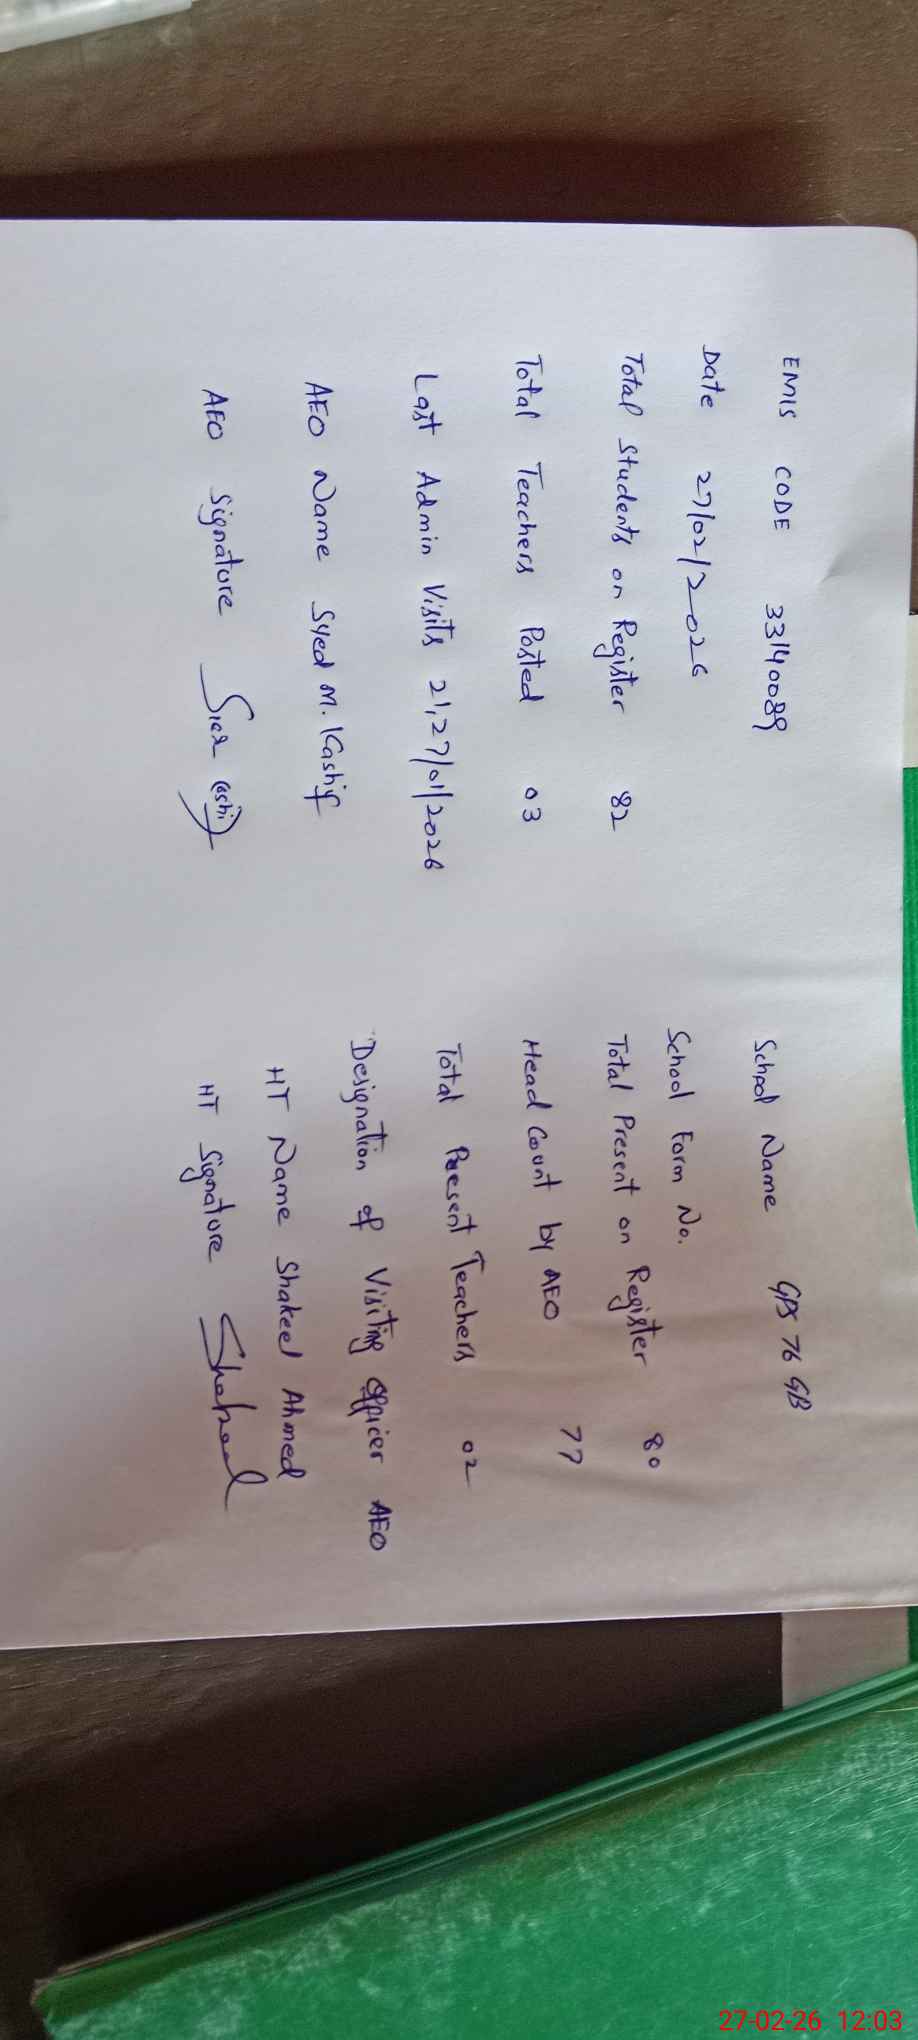 EMIS CODE 33140089
School Name GPS 76 GB
Date 27/02/2026
School Form No.
Total Students on Register 82
Total Present on Register 80
Total Teachers Posted 03
Head Count by AEO 77
Last Admin Visits 21,27/01/2026
Total Present Teachers 02
AEO Name Syed M. Kashif
Designation of Visiting Officer AEO
AEO Signature
HT Name Shakeel Ahmed
HT Signature Shakeel
27-02-26 12:03